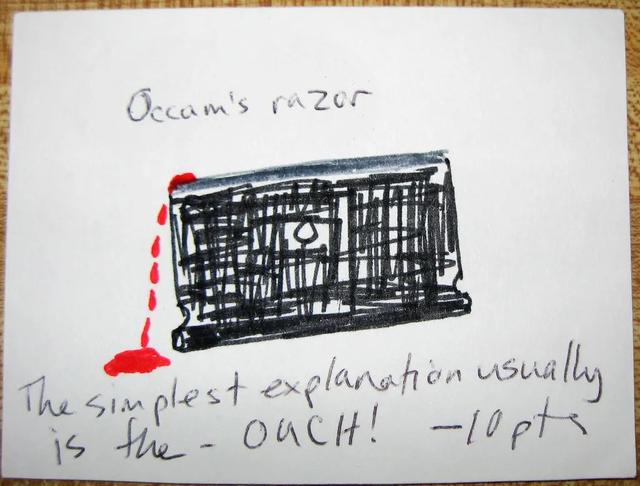 Occam's razor
The simplest explanation usually
is the - OUCH! -10 pts